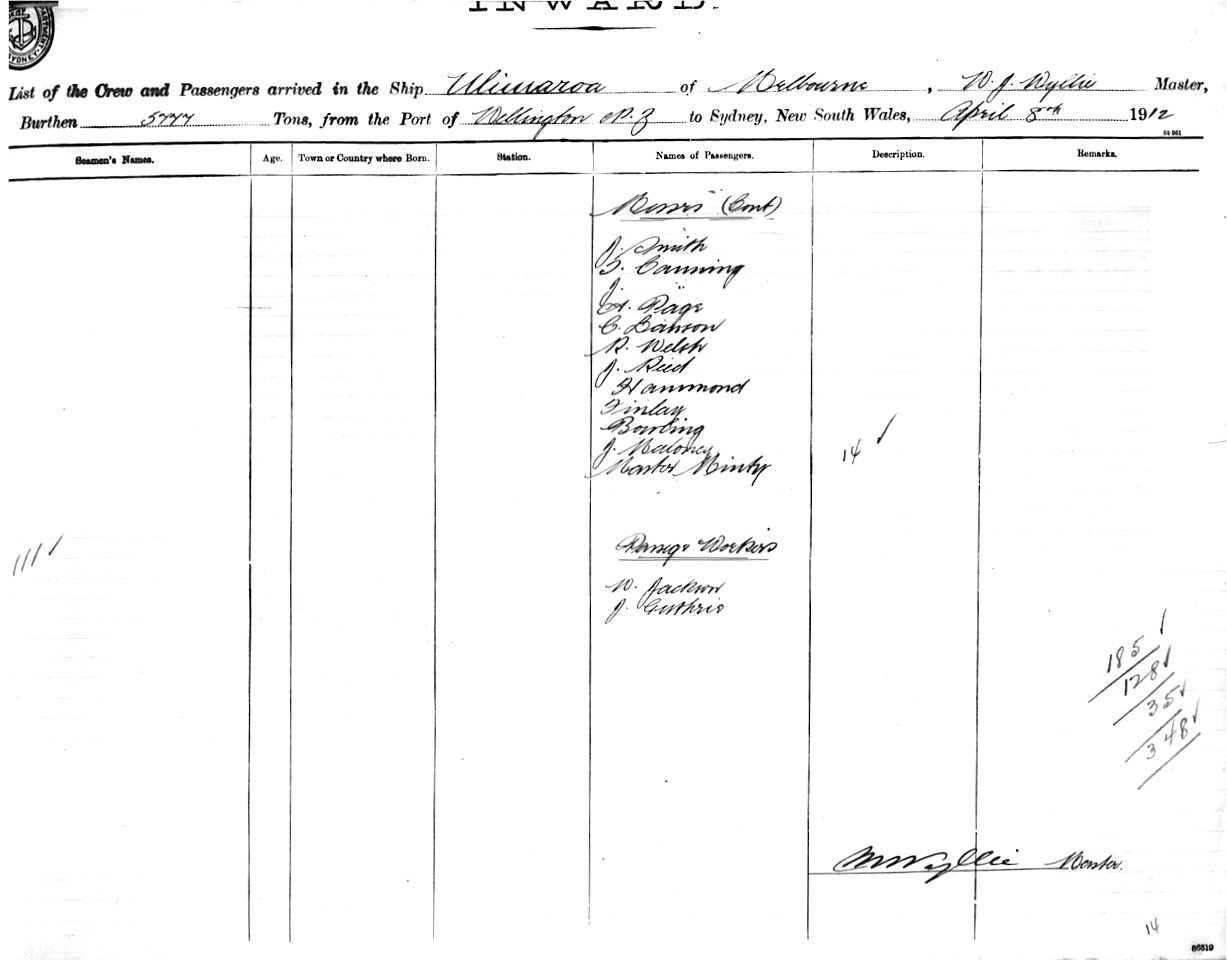 INWARD.
SYDNEY
List of the Crew and Passengers arrived in the Ship Ulimaroa of Melbourne, W. J. Wyllie Master,
Burthen 5777 Tons, from the Port of Wellington N.Z to Sydney, New South Wales, April 8th 1912
Seamen's Names. Age. Town or Country where Born. Station. Names of Passengers. Description. Remarks.
Messrs (Cont)
J. Smith
T. Canning
J. "
A. Page
C. Dawson
R. Welsh
J. Reed
Hammond
Finlay
Bowling
J. Maloney
14 ✓
Master Minty
111 ✓
Passgr Workers
W. Jackson
J. Guthrie
185 ✓
128 ✓
35 ✓
348 ✓
W Wyllie Master.
14
86519